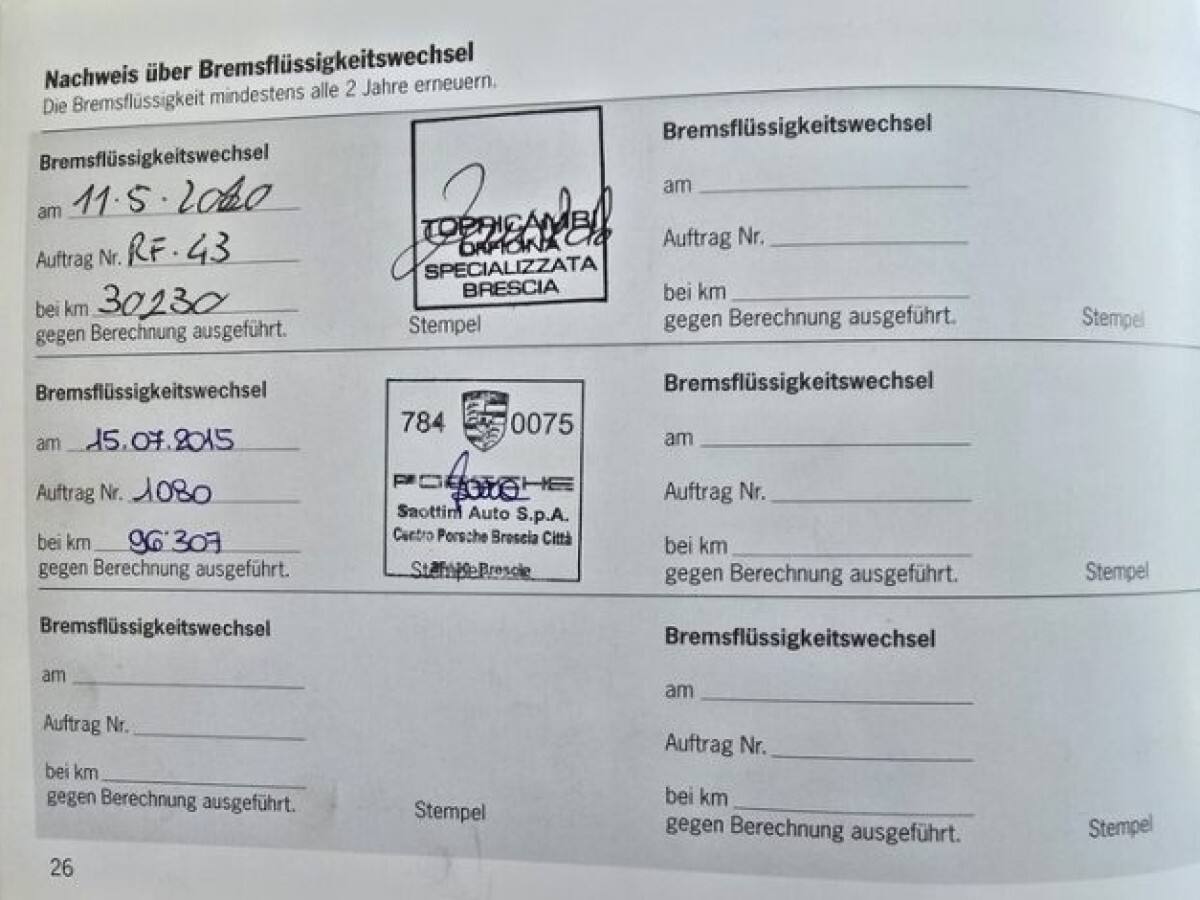 Nachweis über Bremsflüssigkeitswechsel
Die Bremsflüssigkeit mindestens alle 2 Jahre erneuern.
Bremsflüssigkeitswechsel
am 11.5.2010
Auftrag Nr. RF.43
bei km 30230
gegen Berechnung ausgeführt.
TOPRICAMBI
OFFICINA
SPECIALIZZATA
BRESCIA
Stempel
Bremsflüssigkeitswechsel
am
Auftrag Nr.
bei km
gegen Berechnung ausgeführt.
Stempel
Bremsflüssigkeitswechsel
am 15.07.2015
Auftrag Nr. 1080
bei km 96'307
gegen Berechnung ausgeführt.
784 0075
PORSCHE
Saottini Auto S.p.A.
Centro Porsche Brescia Città
Stempel Brescia
Bremsflüssigkeitswechsel
am
Auftrag Nr.
bei km
gegen Berechnung ausgeführt.
Stempel
Bremsflüssigkeitswechsel
am
Auftrag Nr.
bei km
gegen Berechnung ausgeführt.
Stempel
Bremsflüssigkeitswechsel
am
Auftrag Nr.
bei km
gegen Berechnung ausgeführt.
Stempel
26